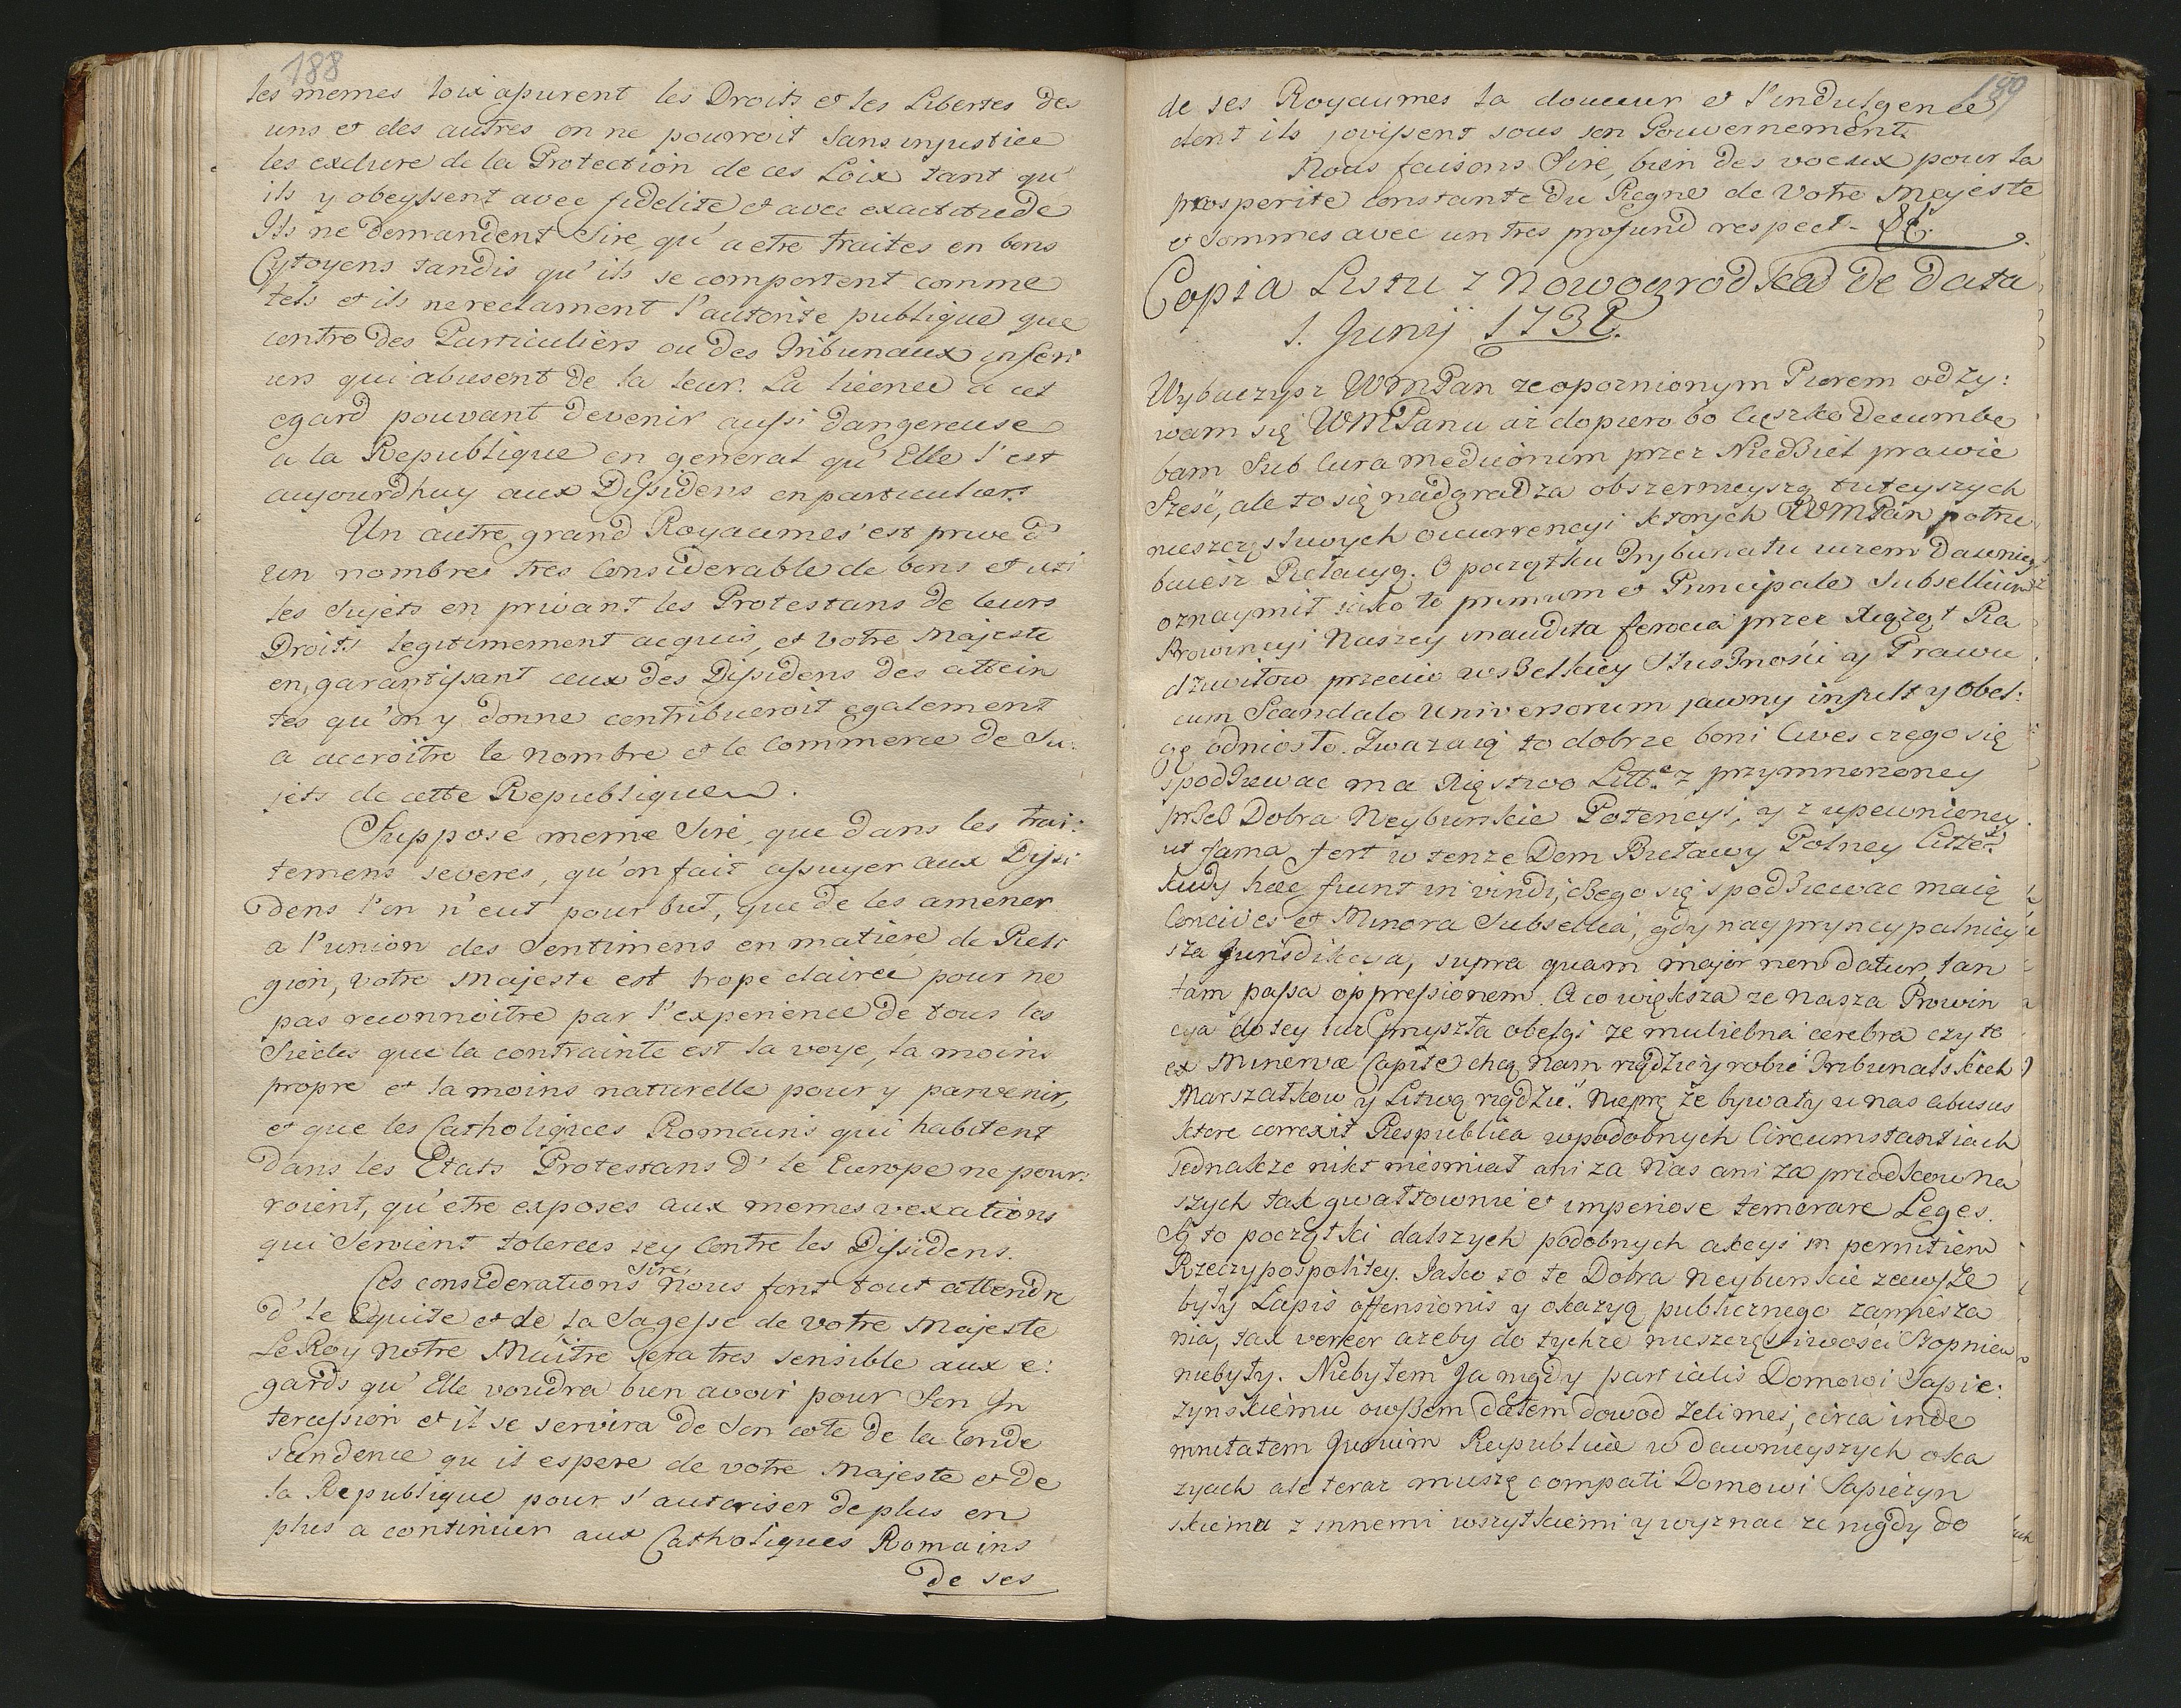 188
les memes loix assurent les Droits et les Libertes des
uns et des autres on ne pourroit sans injustice
les exclure de la Protection de ces Loix tant qu'
ils y obeyssent avec fidelite et avec exactitude
Ils ne demandent Sire qu'a etre traites en bons
Cytoyens tandis qu'ils se comportent comme
tels et ils ne reclament l'autorite publique que
contre des Particuliers ou des Tribunaux inferi
urs qui abusent de la leur. La licence a cet
egard pouvant devenir aussi dangereuse
a la Republique en general qu'Elle l'est
aujourdhuy aux Dissidens en particulier.
Un autre grand Royaume s'est prive d'
un nombres tres Considerable de bons et uti
les Sujets en privant les Protestans de leurs
Droits legitimement acquis, et votre Majeste
en garantissant ceux des Dissidens des attein
tes qu'on y donne contribueroit egalement
a accroitre le nombre et le Commerce de Su:
jets de cette Republique.
Suppose meme Sire, que dans les trai:
temens severes, qu'on fait essuyer aux Dissi
dens l'on n'eut pour but, que de les amener
a l'union des Sentimens en matiere de Reli
gion, votre Majeste est trope clairee pour ne
pas reconnoitre par l'experience de tous les
Siecles que la contrainte est la voye, la moins
propre et la moins naturelle pour y parvenir,
et que les Catholiques Romains qui habitent
dans les Etats Protestans d' le Europe ne pour:
roient, qu'etre exposes aux memes vexations
qui Seroient tolerees icy Contre les Dissidens.
Ces considerations Sire, nous font tout attendre
d' le Equite et de la Sagesse de votre Majeste
Le Roy notre Maitre sera tres sensible aux e:
gards qu'Elle voudra bien avoir pour Son In
tercession et il se servira de Son cote de la Conde
scendence qu il espere de votre Majeste et de
la Republique pour s'autoriser de plus en
plus a continuer aux Catholiques Romains
de ses
189
de ses Royaumes la douceur et l'indulgence
dont ils jouissent sous son Gouvernement.
Nous faisons Sire, bien des voeux pour la
prosperite Constante du Regne de Votre Majeste
et Sommes avec un tres profund respect - &c.
Copia Listu z Nowogrodka de data
1. Junij 1732.
Wybaczysz WMPan ze opoznionym Piorem odzy:
wam się WMPanu aż dopiero bo Cięszko Decumbe
bam Sub Cura Medicorum przez Niedziel prawie
Sześć, ale to się nadgradza obszernieyszą tuteyszych
nieszczęsliwych occurrencyi ktorych WMPan potrze
buiesz Relacyą. O początku Trybunatu iużem dawniey
oznaymił iako te primum et Principale Subsellium
Prowincyi Naszey inaudita ferocia przez Xiążąt Ra
dziwiłow przeciw wszelkiey słuszności y Prawu
cum Scandalo Universorum jawny insult y obel:
gę odniosło. Zważaią to dobrze boni Cives czego się
spodziewac ma Xięstwo Litt. z przymnożoney
przez Dobra Neyburskie Potencyi, y z upewnioney
ut fama fert w tenze Dom Buławy Polney Litte.
kiedy haec fiunt in viridi, czego się spodziewac maią
Concives et Minora Subsellia, gdy nayprincypalniey
sza Jurisdikcya, supra quam major non datur, tan
tam passa oppressionem. A co większa ze nasza Prowin
cya do tey iuz przyszła obelgi ze muliebria cerebra czy to
ex Minervae Capite chcą Nam rządzić y robić Trybunalskich
Marszałkow y Litwą rządzić. Nieprę że bywały u nas abusus
ktore correxit Respublica w podobnych Circumstantiach
Jednakze nikt nieśmiał ani za Nas ani za przodkow na
szych tak gwałtownie et imperiose temerare Leges.
Są to początki dalszych podobnych akcyi in perniciem
Rzeczypospolitey. Jako to te Dobra Neyburskie zawsze
były Lapis offensionis y okazyą publicznego zamiesza
nia, tak vereor azeby do tychze nieszczęsliwości Stopniem
niebyły. Niebyłem Ja nigdy partialis Domowi Sapie:
zynskiemu owszem dałem dowod Zeli mei, circa inde
mnitatem Jurium Reipublicae w dawnieyszych oka
zyach ale teraz muszę compati Domowi Sapiezyn
skiemu z innemi wszytkiemi y wyznac ze nigdy do